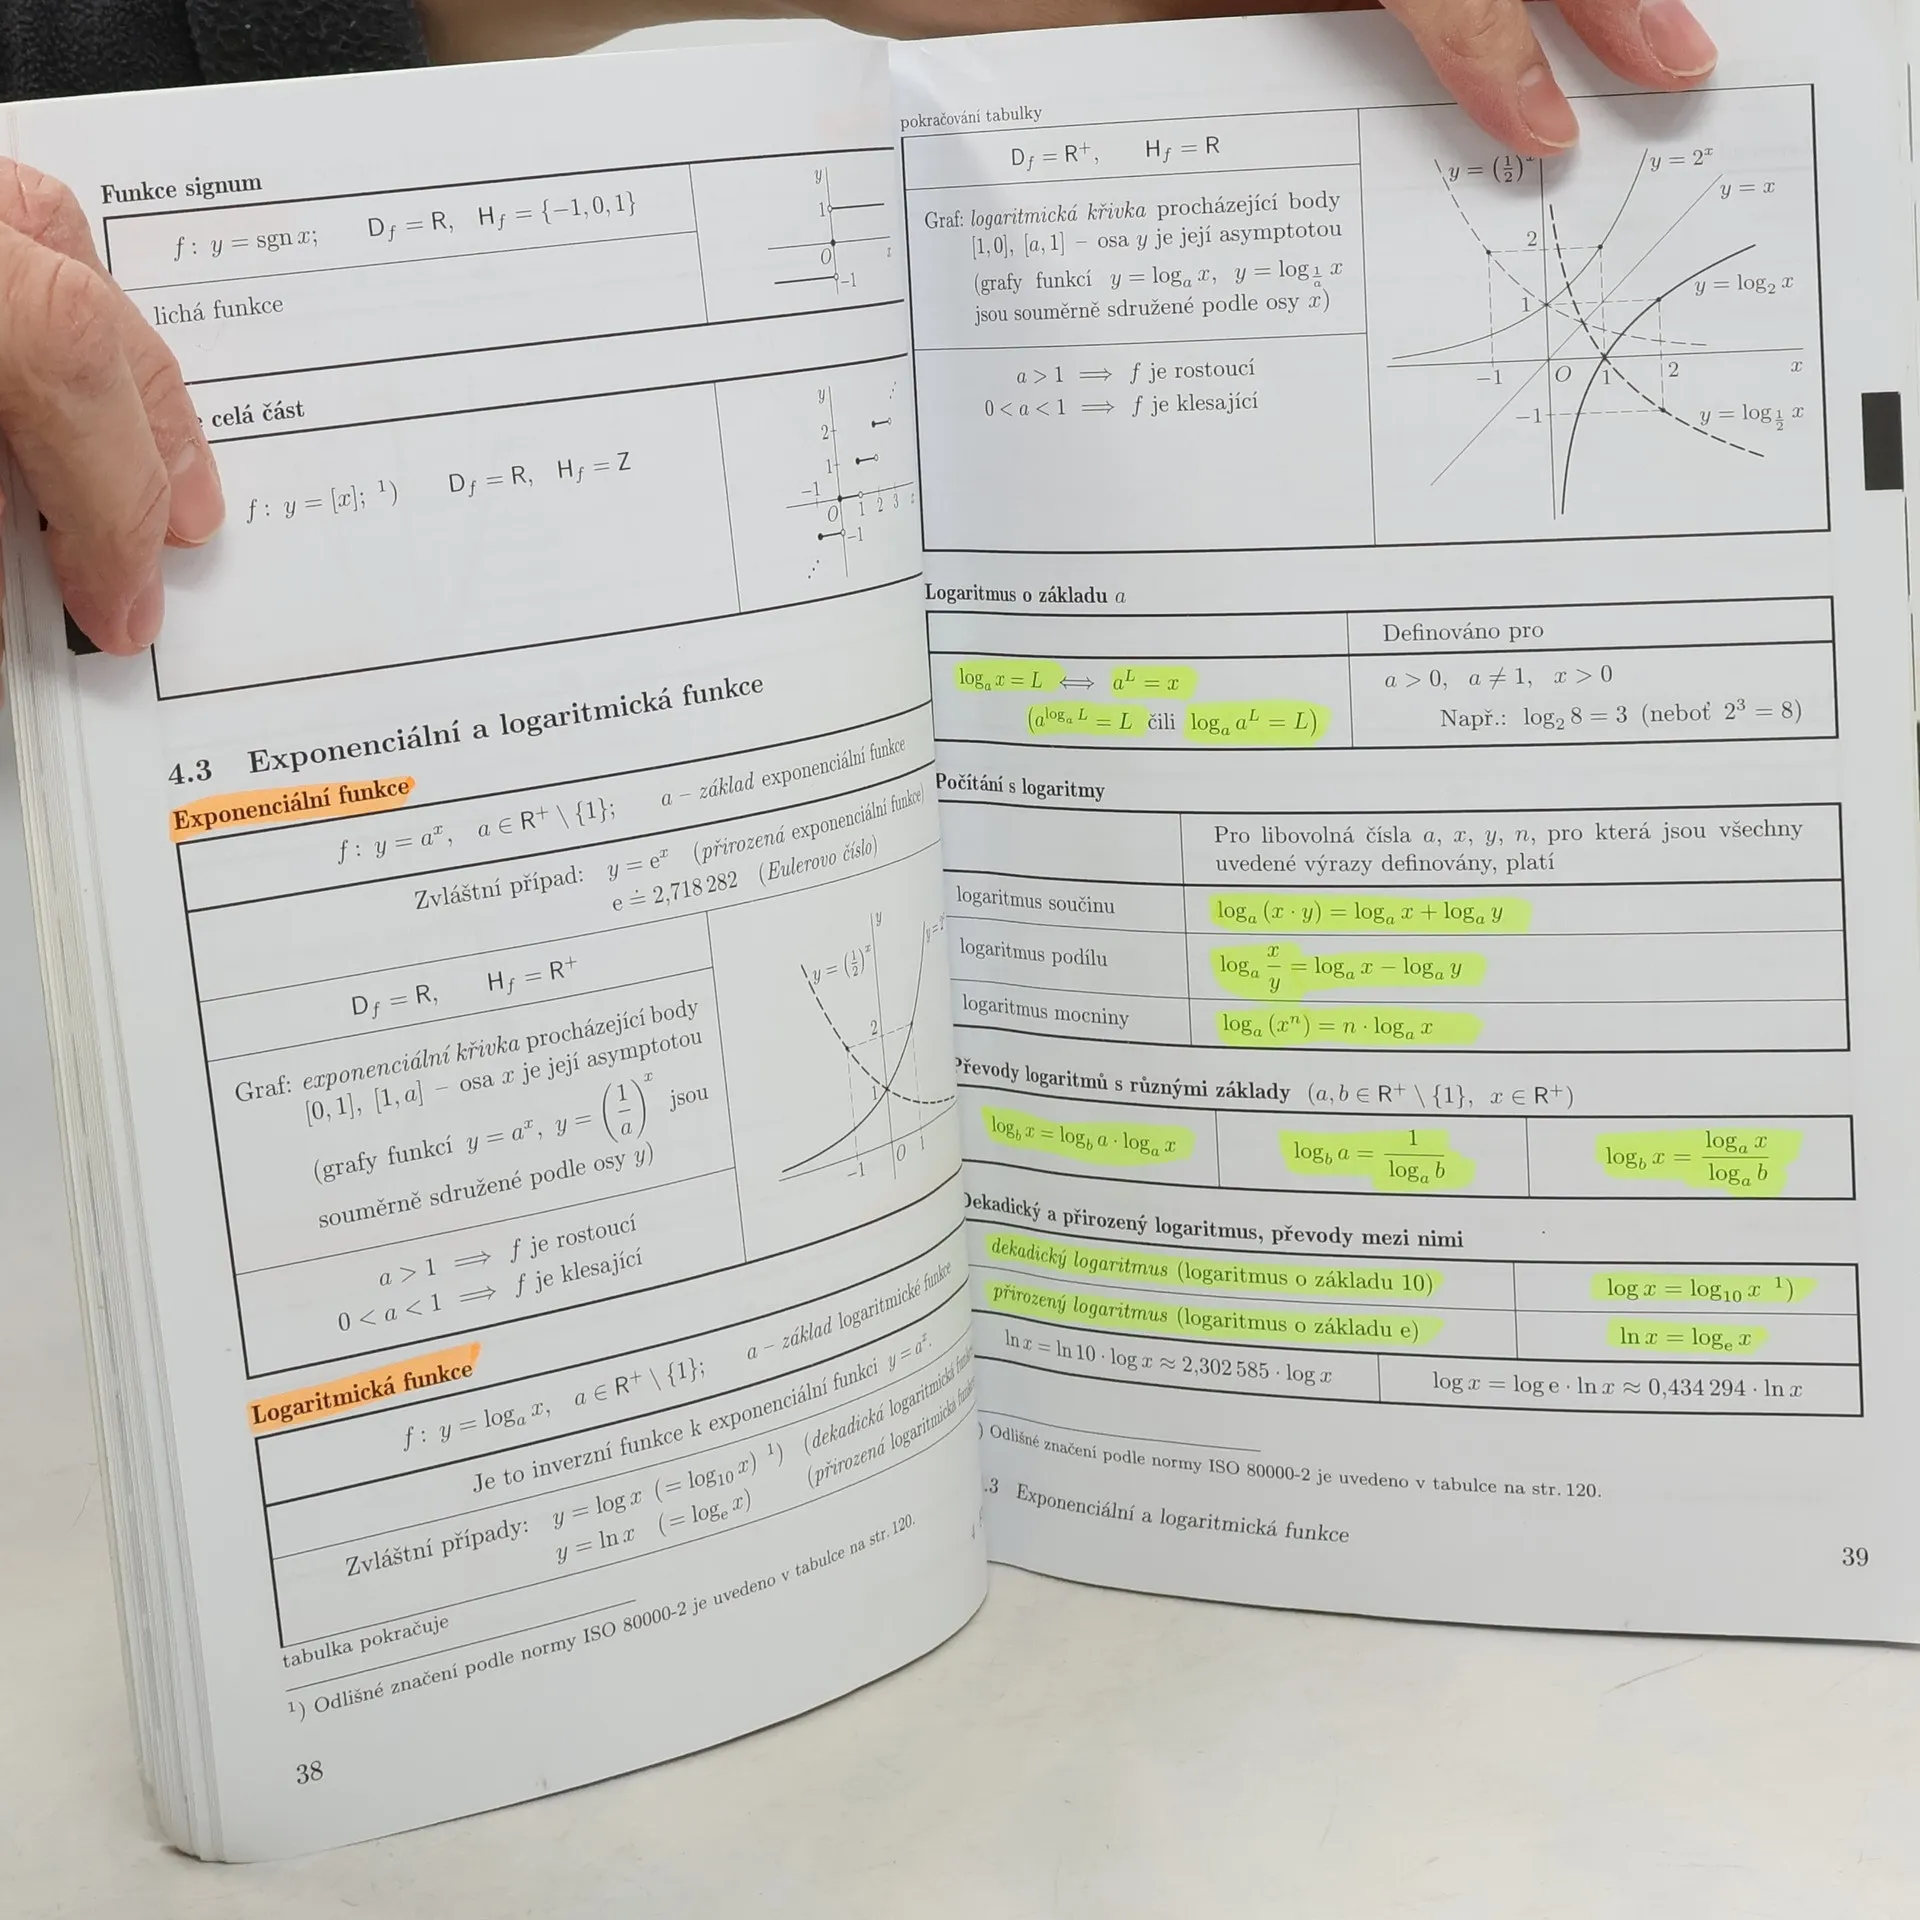 Funkce signum
f: y = sgn x; D_f = R, H_f = {−1, 0, 1}
lichá funkce
y
1
O
−1
celá část
f: y = [x]; ¹) D_f = R, H_f = Z
y
2
1
−1
O 1 2 3
−1
4.3 Exponenciální a logaritmická funkce
Exponenciální funkce
f: y = a^x, a ∈ R⁺ \ {1}; a − základ exponenciální funkce
Zvláštní případ: y = e^x (přirozená exponenciální funkce)
e ≐ 2,718 282 (Eulerovo číslo)
D_f = R, H_f = R⁺
Graf: exponenciální křivka procházející body
[0, 1], [1, a] − osa x je její asymptotou
(grafy funkcí y = a^x, y = (1/a)^x jsou
souměrně sdružené podle osy y)
a > 1 ⟹ f je rostoucí
0 < a < 1 ⟹ f je klesající
y
y = (1/2)^x
y = 2
2
1
−1 O 1
Logaritmická funkce
f: y = log_a x, a ∈ R⁺ \ {1}; a − základ logaritmické funkce
Je to inverzní funkce k exponenciální funkci y = a^x.
Zvláštní případy: y = log x (= log₁₀ x) ¹) (dekadická logaritmická
y = ln x (= log_e x) (přirozená logaritmická
tabulka pokračuje
¹) Odlišné značení podle normy ISO 80000-2 je uvedeno v tabulce na str. 120.
38
pokračování tabulky
D_f = R⁺, H_f = R
Graf: logaritmická křivka procházející body
[1, 0], [a, 1] − osa y je její asymptotou
(grafy funkcí y = log_a x, y = log_{1/a} x
jsou souměrně sdružené podle osy x)
a > 1 ⟹ f je rostoucí
0 < a < 1 ⟹ f je klesající
y = (1/2)^x
y = 2^x
y = x
2
y = log₂ x
1
−1 O 1 2 x
−1
y = log_{1/2} x
Logaritmus o základu a
Definováno pro
log_a x = L ⟺ a^L = x
(a^{log_a L} = L čili log_a a^L = L)
a > 0, a ≠ 1, x > 0
Např.: log₂ 8 = 3 (neboť 2³ = 8)
Počítání s logaritmy
Pro libovolná čísla a, x, y, n, pro která jsou všechny
uvedené výrazy definovány, platí
logaritmus součinu log_a (x · y) = log_a x + log_a y
logaritmus podílu log_a x/y = log_a x − log_a y
logaritmus mocniny log_a (x^n) = n · log_a x
Převody logaritmů s různými základy (a, b ∈ R⁺ \ {1}, x ∈ R⁺)
log_b x = log_b a · log_a x log_b a = 1/log_a b log_b x = log_a x/log_a b
Dekadický a přirozený logaritmus, převody mezi nimi
dekadický logaritmus (logaritmus o základu 10) log x = log₁₀ x ¹)
přirozený logaritmus (logaritmus o základu e) ln x = log_e x
ln x = ln 10 · log x ≈ 2,302 585 · log x log x = log e · ln x ≈ 0,434 294 · ln x
) Odlišné značení podle normy ISO 80000-2 je uvedeno v tabulce na str. 120.
.3 Exponenciální a logaritmická funkce
39